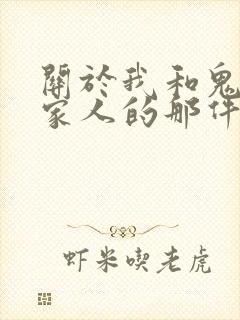 關於我和鬼
家人的那件
虾米喫老虎